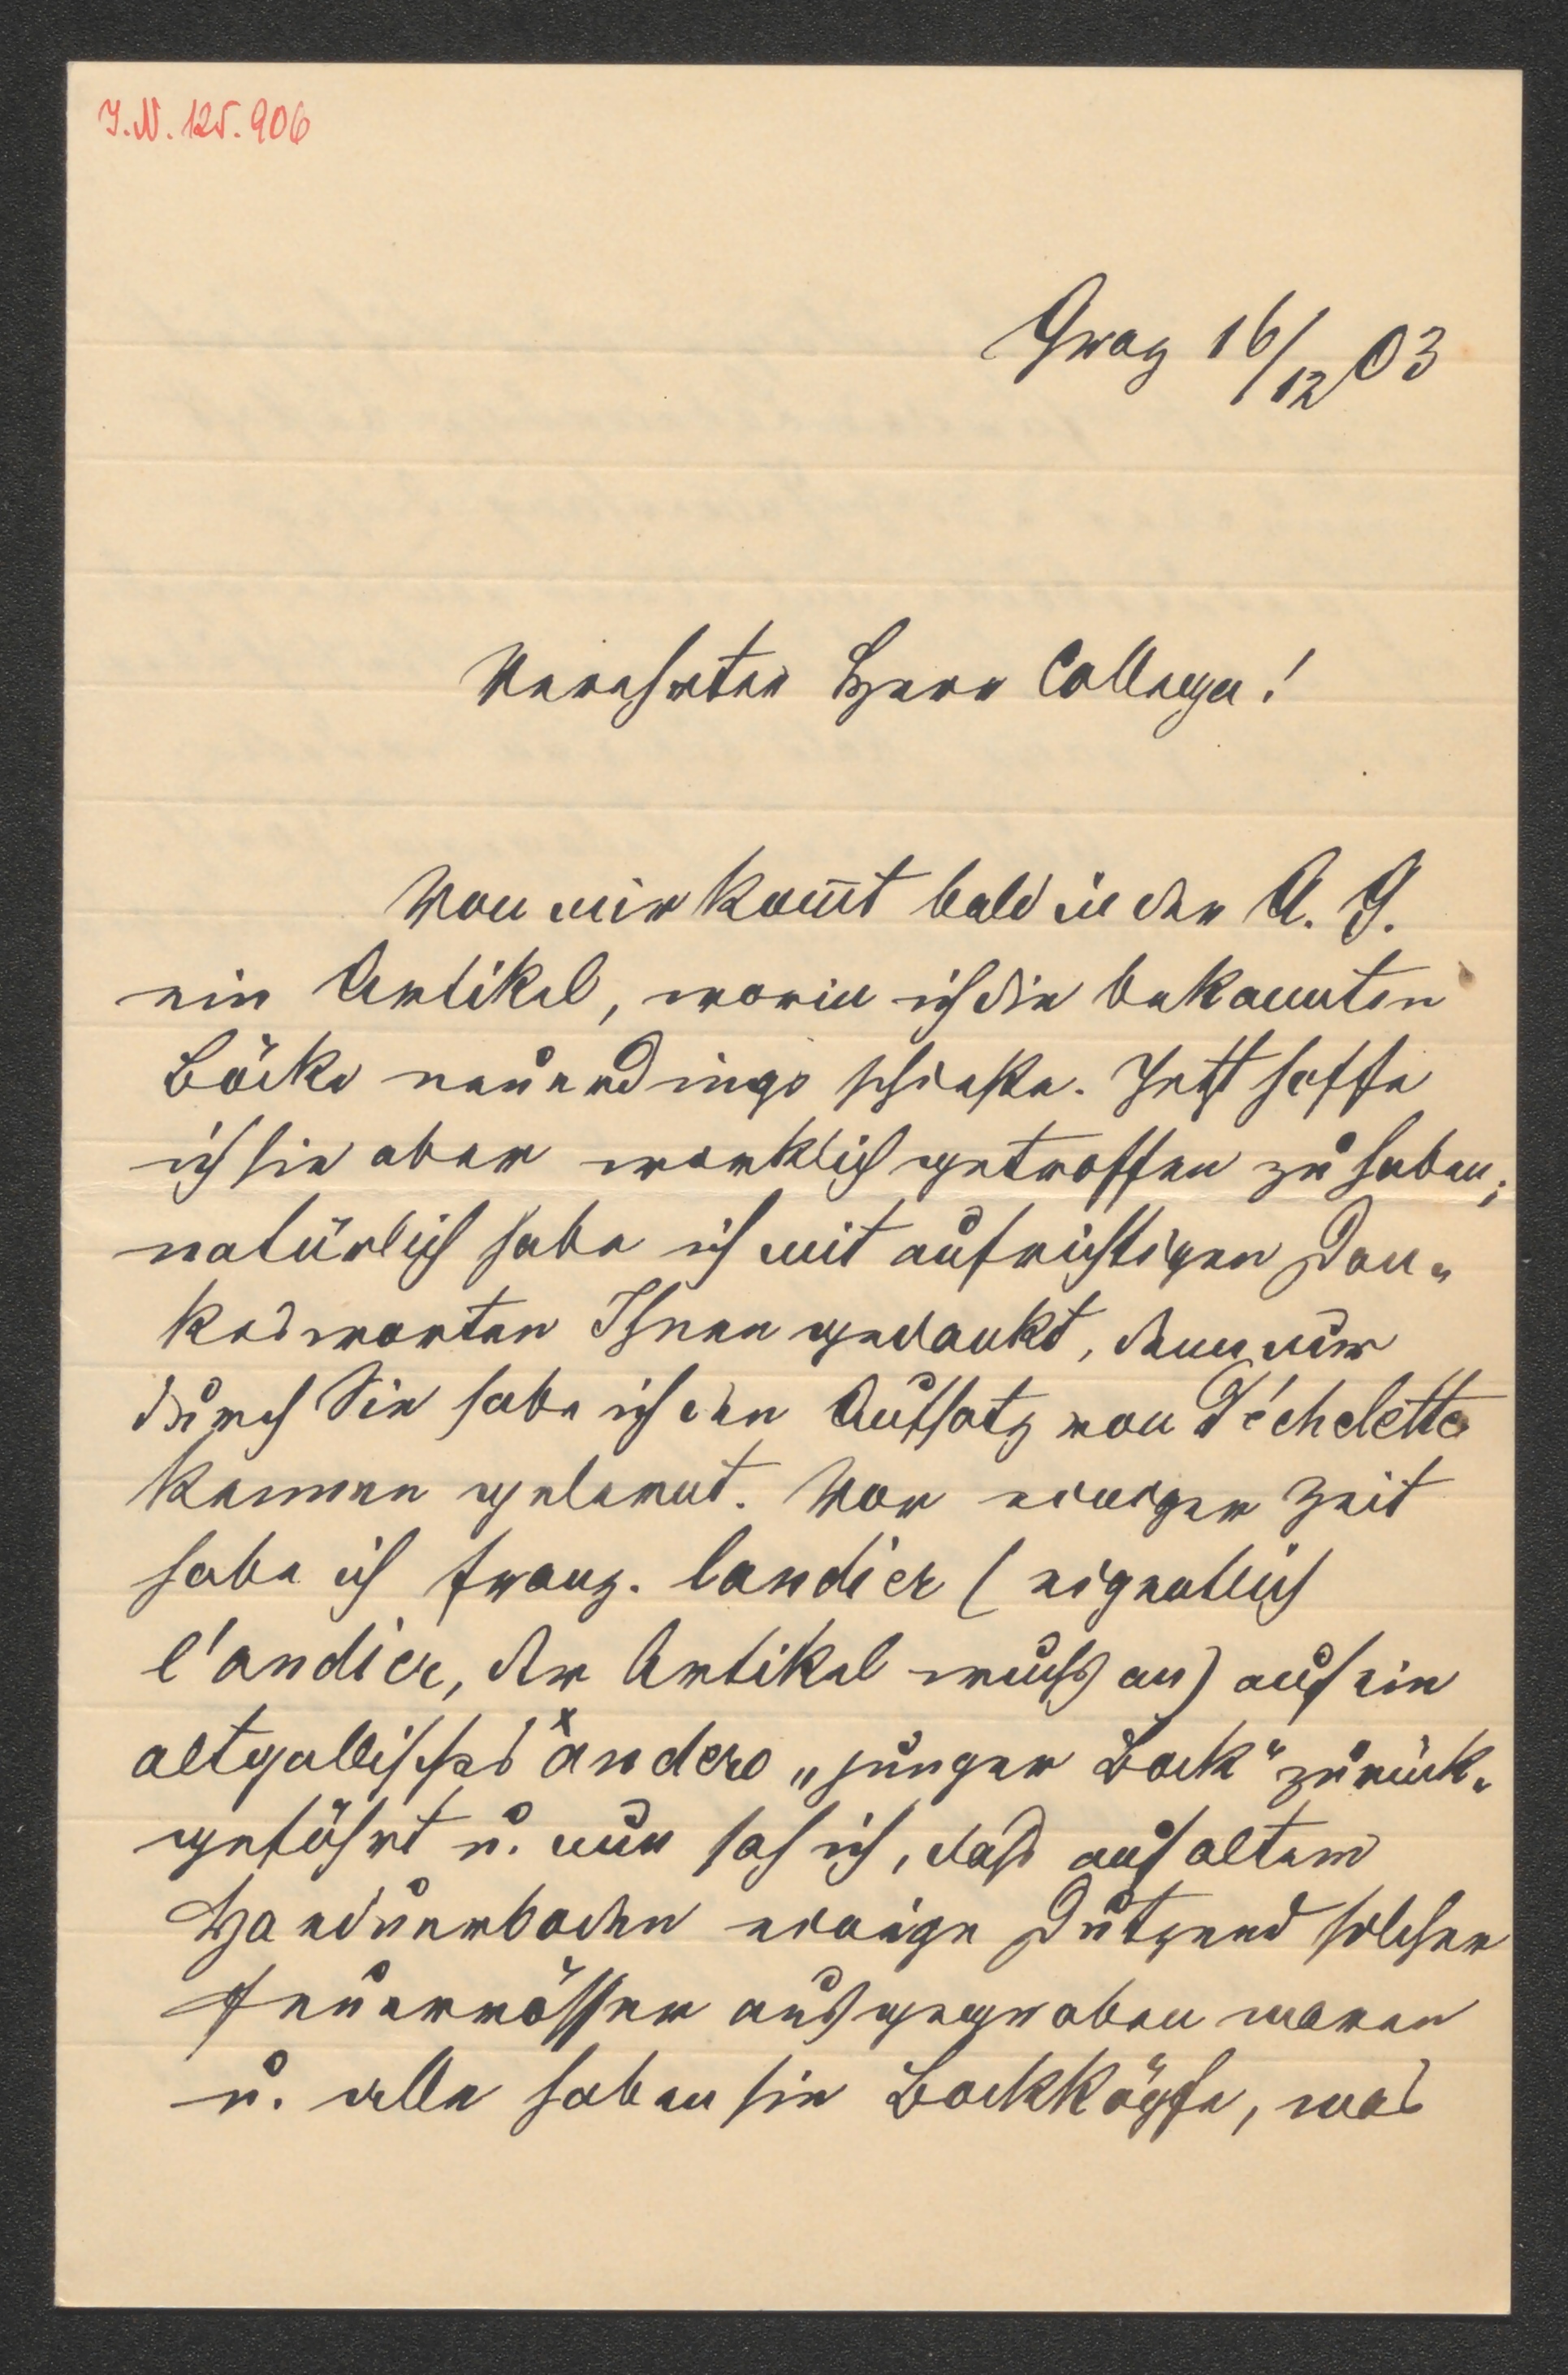 I.N. 125.906
Graz 16/12 03
Verehrter Herr Collega!
Von mir kom̅t bald in der A. G.
ein Artikel, worin ich die bekannten
Böcke neuerdings schieße. Jetzt hoffe
ich sie aber wirklich getroffen zu haben;
natürlich habe ich mit aufrichtigen Dan-
kesworten Ihnen gedankt, denn nur
durch Sie habe ich den Aufsatz von Déchelette
kennen gelernt. Vor einiger Zeit
habe ich franz. landier (eigentlich
l'andier, der Artikel wuchs an) auf ein
altgallisches ˣandero „junger Bock“ zurück-
geführt u. nun sah ich, dass auf altem
Haeduerboden einige Dutzend solcher
Feuerrösser ausgegraben waren
u. alle haben sie Bockköpfe, was